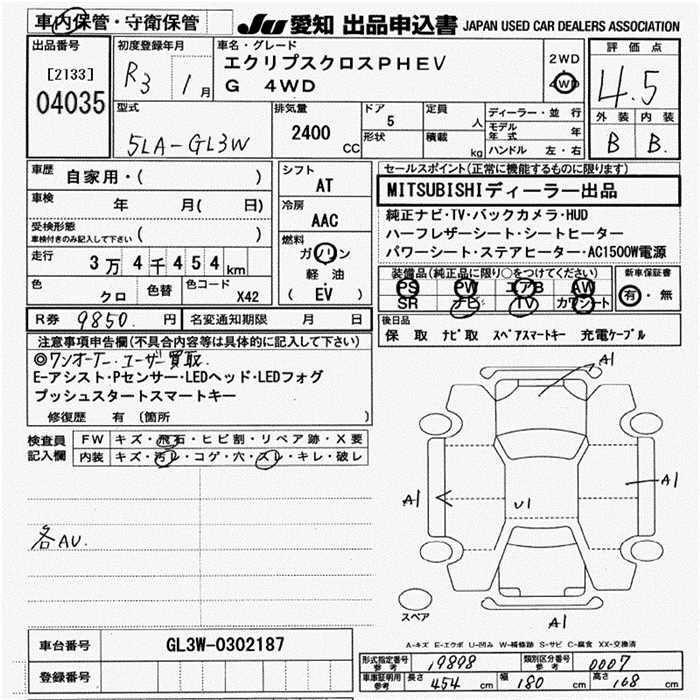 車内保管・守衛保管
JU 愛知 出品申込書 JAPAN USED CAR DEALERS ASSOCIATION
出品番号
[2133]
04035
初度登録年月
R3 1月
車名・グレード
エクリプスクロスPHEV
G 4WD
2WD
4WD
評価点
4.5
外装 内装
B B.
型式
5LA-GL3W
排気量
2400 CC
ドア
5
形状
定員
人
積載
kg
ディーラー・並行
モデル年式 年
ハンドル 左・右
車歴
自家用・( )
車検
年 月( 日)
受検形態
車検付きのみ記入して下さい ( )
走行
3万4千454km
色
クロ
色替
色コード
X42
シフト
AT
冷房
AAC
燃料
ガソリン
軽油
( EV )
セールスポイント(正常に機能するものに限ります)
MITSUBISHIディーラー出品
純正ナビ・TV・バックカメラ・HUD
ハーフレザーシート・シートヒーター
パワーシート・ステアヒーター・AC1500W電源
装備品(純正品に限り○をつけてください)
PS PW エアB AW
SR ナビ TV カワシート
新車保証書
有・無
R券 9850. 円
名変通知期限 月 日
後日品
保 取 ナビ取 スペアスマートキー 充電ケーブル
注意事項申告欄(不具合内容等は具体的に記入して下さい)
◎ワンオーナー・ユーザー買取.
E-アシスト・Pセンサー・LEDヘッド・LEDフォグ
プッシュスタートスマートキー
修復歴 有 (箇所 )
検査員記入欄
FW キズ・飛石・ヒビ割・リペア跡・X要
内装 キズ・汚レ・コゲ・穴・スレ・キレ・破レ
各AU.
A1
A1
U1
A1
A1
スペア
A-キズ E-エクボ U-凹み W-補修跡 S-サビ C-腐食 XX-交換済
車台番号
GL3W-0302187
登録番号
形式指定番号 参考 19898
類別区分番号 参考 0007
車庫証明用 参考
長さ 454 cm
幅 180 cm
高さ 168 cm